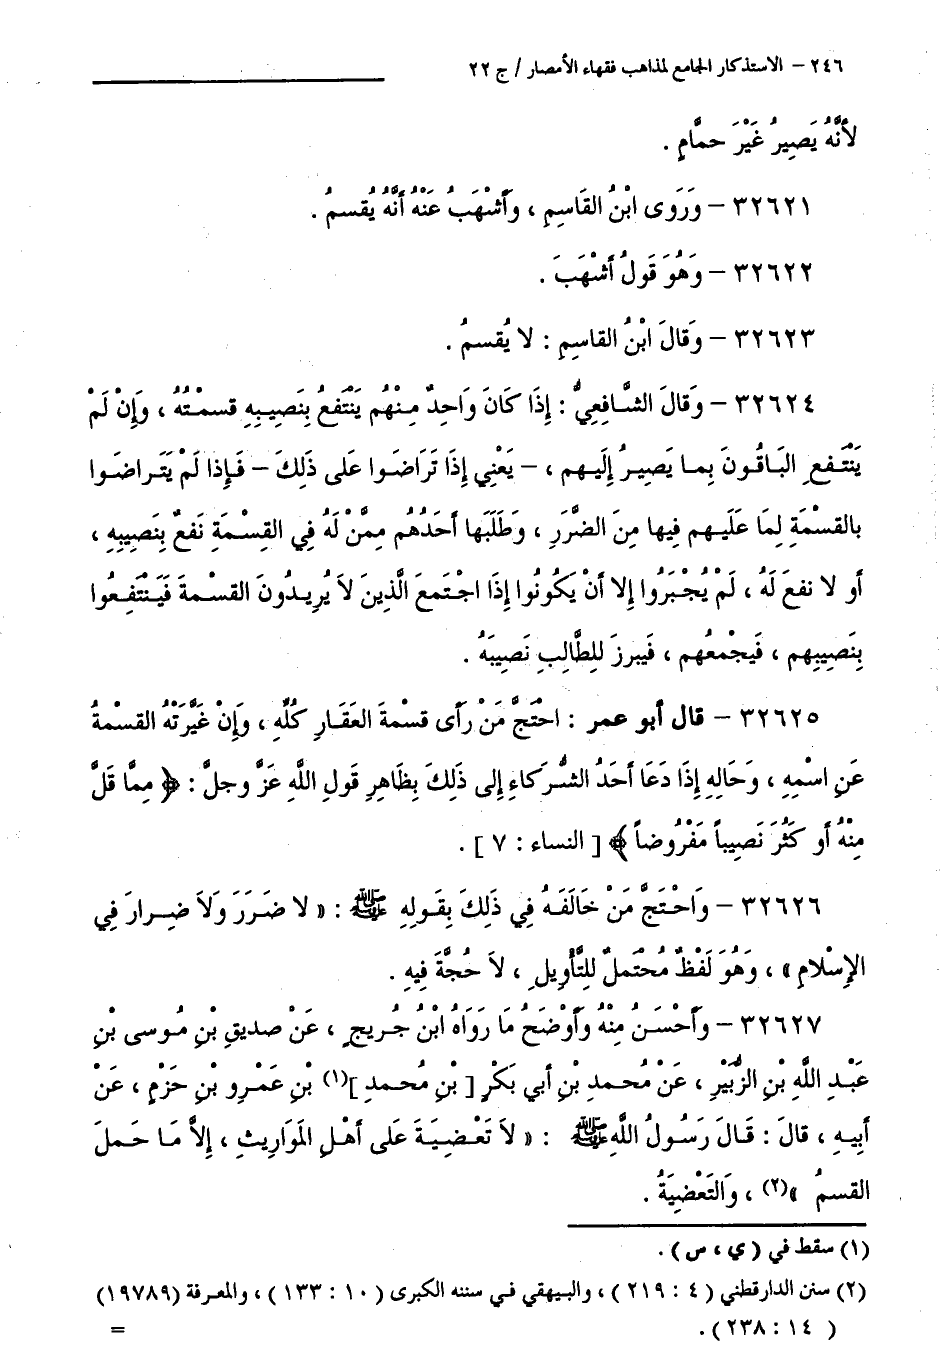 ٢٤٦ – الاستذكار الجامع لمذاهب فقهاء الأمصار / ج ٢٢
لأَنَّهُ يَصِيرُ غَيْرَ حمَّامٍ .
٣٢٦٢١ – وَرَوَى ابْنُ القَاسِمِ ، وأَشْهَبُ عَنْهُ أنَّهُ يُقسمُ .
٣٢٦٢٢ – وَهُوَ قَولُ أَشْهَبَ .
٣٢٦٢٣ – وَقالَ ابْنُ القاسِمِ : لا يُقسمُ .
٣٢٦٢٤ – وَقَالَ الشَّافِعِيُّ : إِذَا كَانَ وَاحِدٌ مِنْهُم يَنْتَفعُ بِنَصِيبِهِ قسمْتُهُ ، وَإِنْ لَمْ
يَنْتَفعِ البَاقُونَ بِما يَصِيرُ إِلَيهم ، – يَعْنِي إِذَا تَرَاضَوا عَلى ذَلِكَ – فَإِذا لَمْ يَتَراضَوا
بالقسْمَةِ لِمَا عَلَيهم فِيها مِنَ الضَّرَرِ ، وَطَلَبَها أَحَدُهُم مِمَّنْ لَهُ فِي القِسْمَةِ نَفعٌ بِنَصِيبِهِ ،
أو لا نفعَ لَهُ ، لَمْ يُجْبَرُوا إِلا أَنْ يَكُونُوا إِذَا اجْتَمعَ الَّذِينَ لاَ يُرِيدُونَ القسْمةَ فَيَنْتَفِعُوا
بِنَصِيبِهم ، فَيجْمعُهم ، فَيبرزَ لِلطَّالِبِ نَصِيبَهُ .
٣٢٦٢٥ – قال أبو عمر : احْتَجَّ مَنْ رَأى قسْمةَ العَقَارِ كُلِّهِ ، وَإِنْ غَيَّرَتْهُ القسْمةُ
عَنِ اسْمِهِ ، وَحَالِهِ إِذَا دَعَا أَحَدُ الشُّرَكاءِ إِلى ذَلِكَ بِظَاهِرِ قَولِ اللهِ عَزَّ وجلَّ : ﴿ مِمَّا قَلَّ
مِنْهُ أَو كَثُرَ نَصِيباً مَفْرُوضاً ﴾ [ النساء : ٧ ] .
٣٢٦٢٦ – وَاحْتَجَّ مَنْ خَالَفَهُ فِي ذَلِكَ بِقَولِهِ ﷺ : « لا ضَرَرَ وَلاَ ضِرارَ فِي
الإِسْلامِ » ، وَهُوَ لَفْظٌ مُحْتَملٌ لِلتَّأْوِيلِ ، لاَ حُجَّةَ فِيهِ .
٣٢٦٢٧ – وَأَحْسَنُ مِنْهُ وَأَوْضَحُ مَا رَوَاهُ ابْنُ جُرَيجٍ ، عَنْ صديقِ بْنِ مُوسى بْنِ
عَبْدِ اللَّهِ بْنِ الزُّبَيْرِ ، عَنْ محمدِ بْنِ أَبي بَكْرٍ [ بْنِ مُحمدٍ ](١) بْنِ عَمْرِو بْنِ حَزْمٍ ، عَنْ
أَبِيهِ ، قالَ : قَالَ رَسُولُ اللَّهِ ﷺ : « لاَ تَعْضِيَةَ عَلى أَهْلِ المَوَارِيثِ ، إِلاَّ مَا حَملَ
القسمُ »(٢) ، وَالتَعْضِيَةُ .
(١) سقط في ( ي ، س ) .
(٢) سنن الدارقطني ( ٤ : ٢١٩ ) ، والبيهقي في سننه الكبرى ( ١٠ : ١٣٣ ) ، والمعرفة (١٩٧٨٩)
( ١٤ : ٢٣٨ ) . =